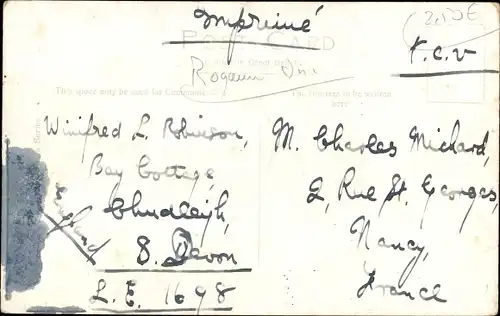 Impreiné
T.C.V
POST CARD
This space may be used for
The Address to be written
Winifred L. Robinson,
Bay Cottage,
Chudleigh,
S. Devon
England
L.E. 1698
M. Charles Michard,
2, Rue St. Georges,
Nancy,
France